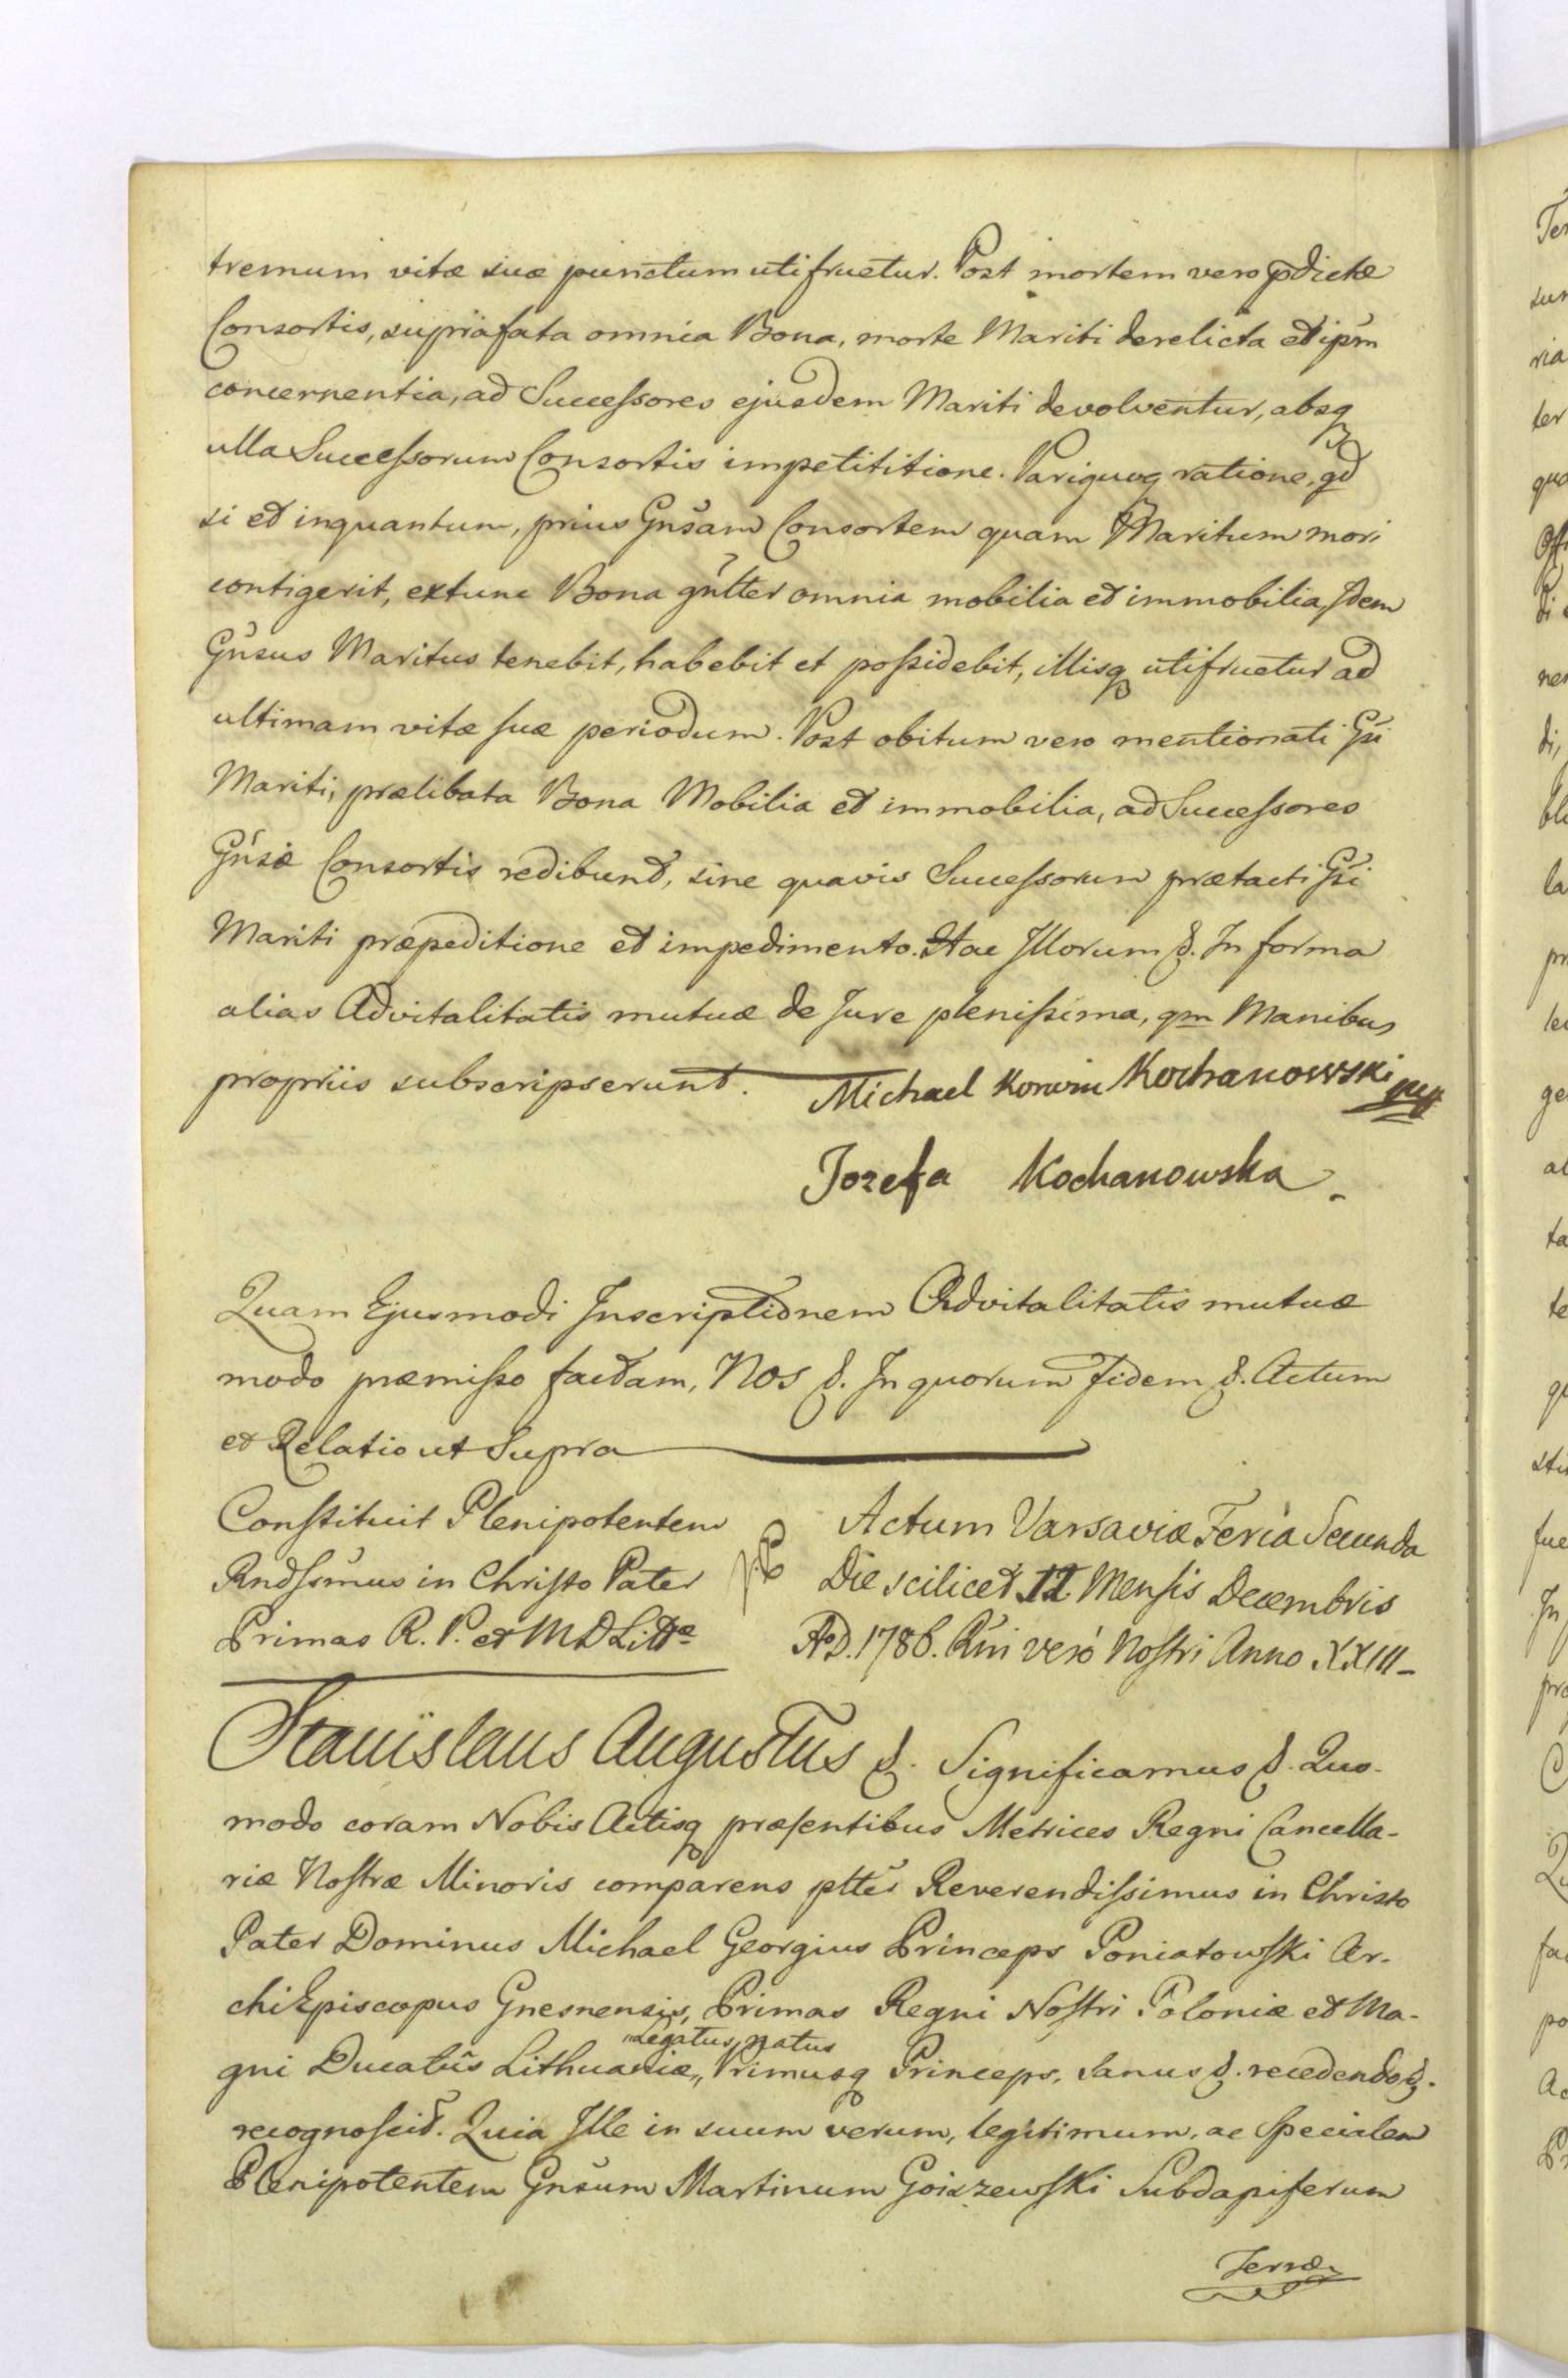 tremum vitæ suæ punctum utifruetur. Post mortem vero pdictæ
Consortis, suprafata omnia Bona, morte Mariti derelicta et ipm
concernentia, ad Successores ejusdem Mariti devolventur, absq
ulla Successorum Consortis impetititione. Pariquoq ratione, qd
si et inquantum, prius Gnsam Consortem quam Maritum mori
contigerit, extunc Bona gnltter omnia mobilia et immobilia, Idem
Gnsus Maritus tenebit, habebit et possidebit, illisq utifruetur ad
ultimam vitæ suæ periodum. Post obitum vero mentionati Gsi
Mariti, prælibata Bona Mobilia et immobilia, ad Successores
Gnsæ Consortis redibunt, sine quavis Successorum prætacti Gsi
Mariti præpeditione et impedimento. Hac Illorum &. In forma
alias Advitalitatis mutuæ de Jure plenissima, qm Manibus
propriis subscripserunt. Michael Korwin Kochanowski mp
Jozefa Kochanowska.
Quam Ejusmodi Inscriptionem Advitalitatis mutuæ
modo præmisso factam, Nos &. In quorum Fidem &. Actum
et Relatio ut Supra
Constituit Plenipotentem
Rndssmus in Christo Pater
Primas R. P. et M D Littæ
Actum Varsaviæ Feria Secunda
Die scilicet 11 Mensis Decembris
AoD. 1786. Rni vero Nostri Anno XXIII_
Stanislaus Augustus &. Significamus &. Quo-
modo coram Nobis Actisq præsentibus Metrices Regni Cancella-
riæ Nostræ Minoris comparens pltter Reverendissimus in Christo
Pater Dominus Michael Georgius Princeps Poniatowski Ar-
chiEpiscopus Gnesnensis, Primas Regni Nostri Poloniæ et Ma-
Legatus natus
gni Ducatus Lithuaniæ,, Primusq Princeps, Sanus &. recedendo &.
recognoscit. Quia Ille in suum verum, legitimum, ac Specialem
Plenipotentem Gnsum Martinum Goiszewski Subdapiferum
Terræ